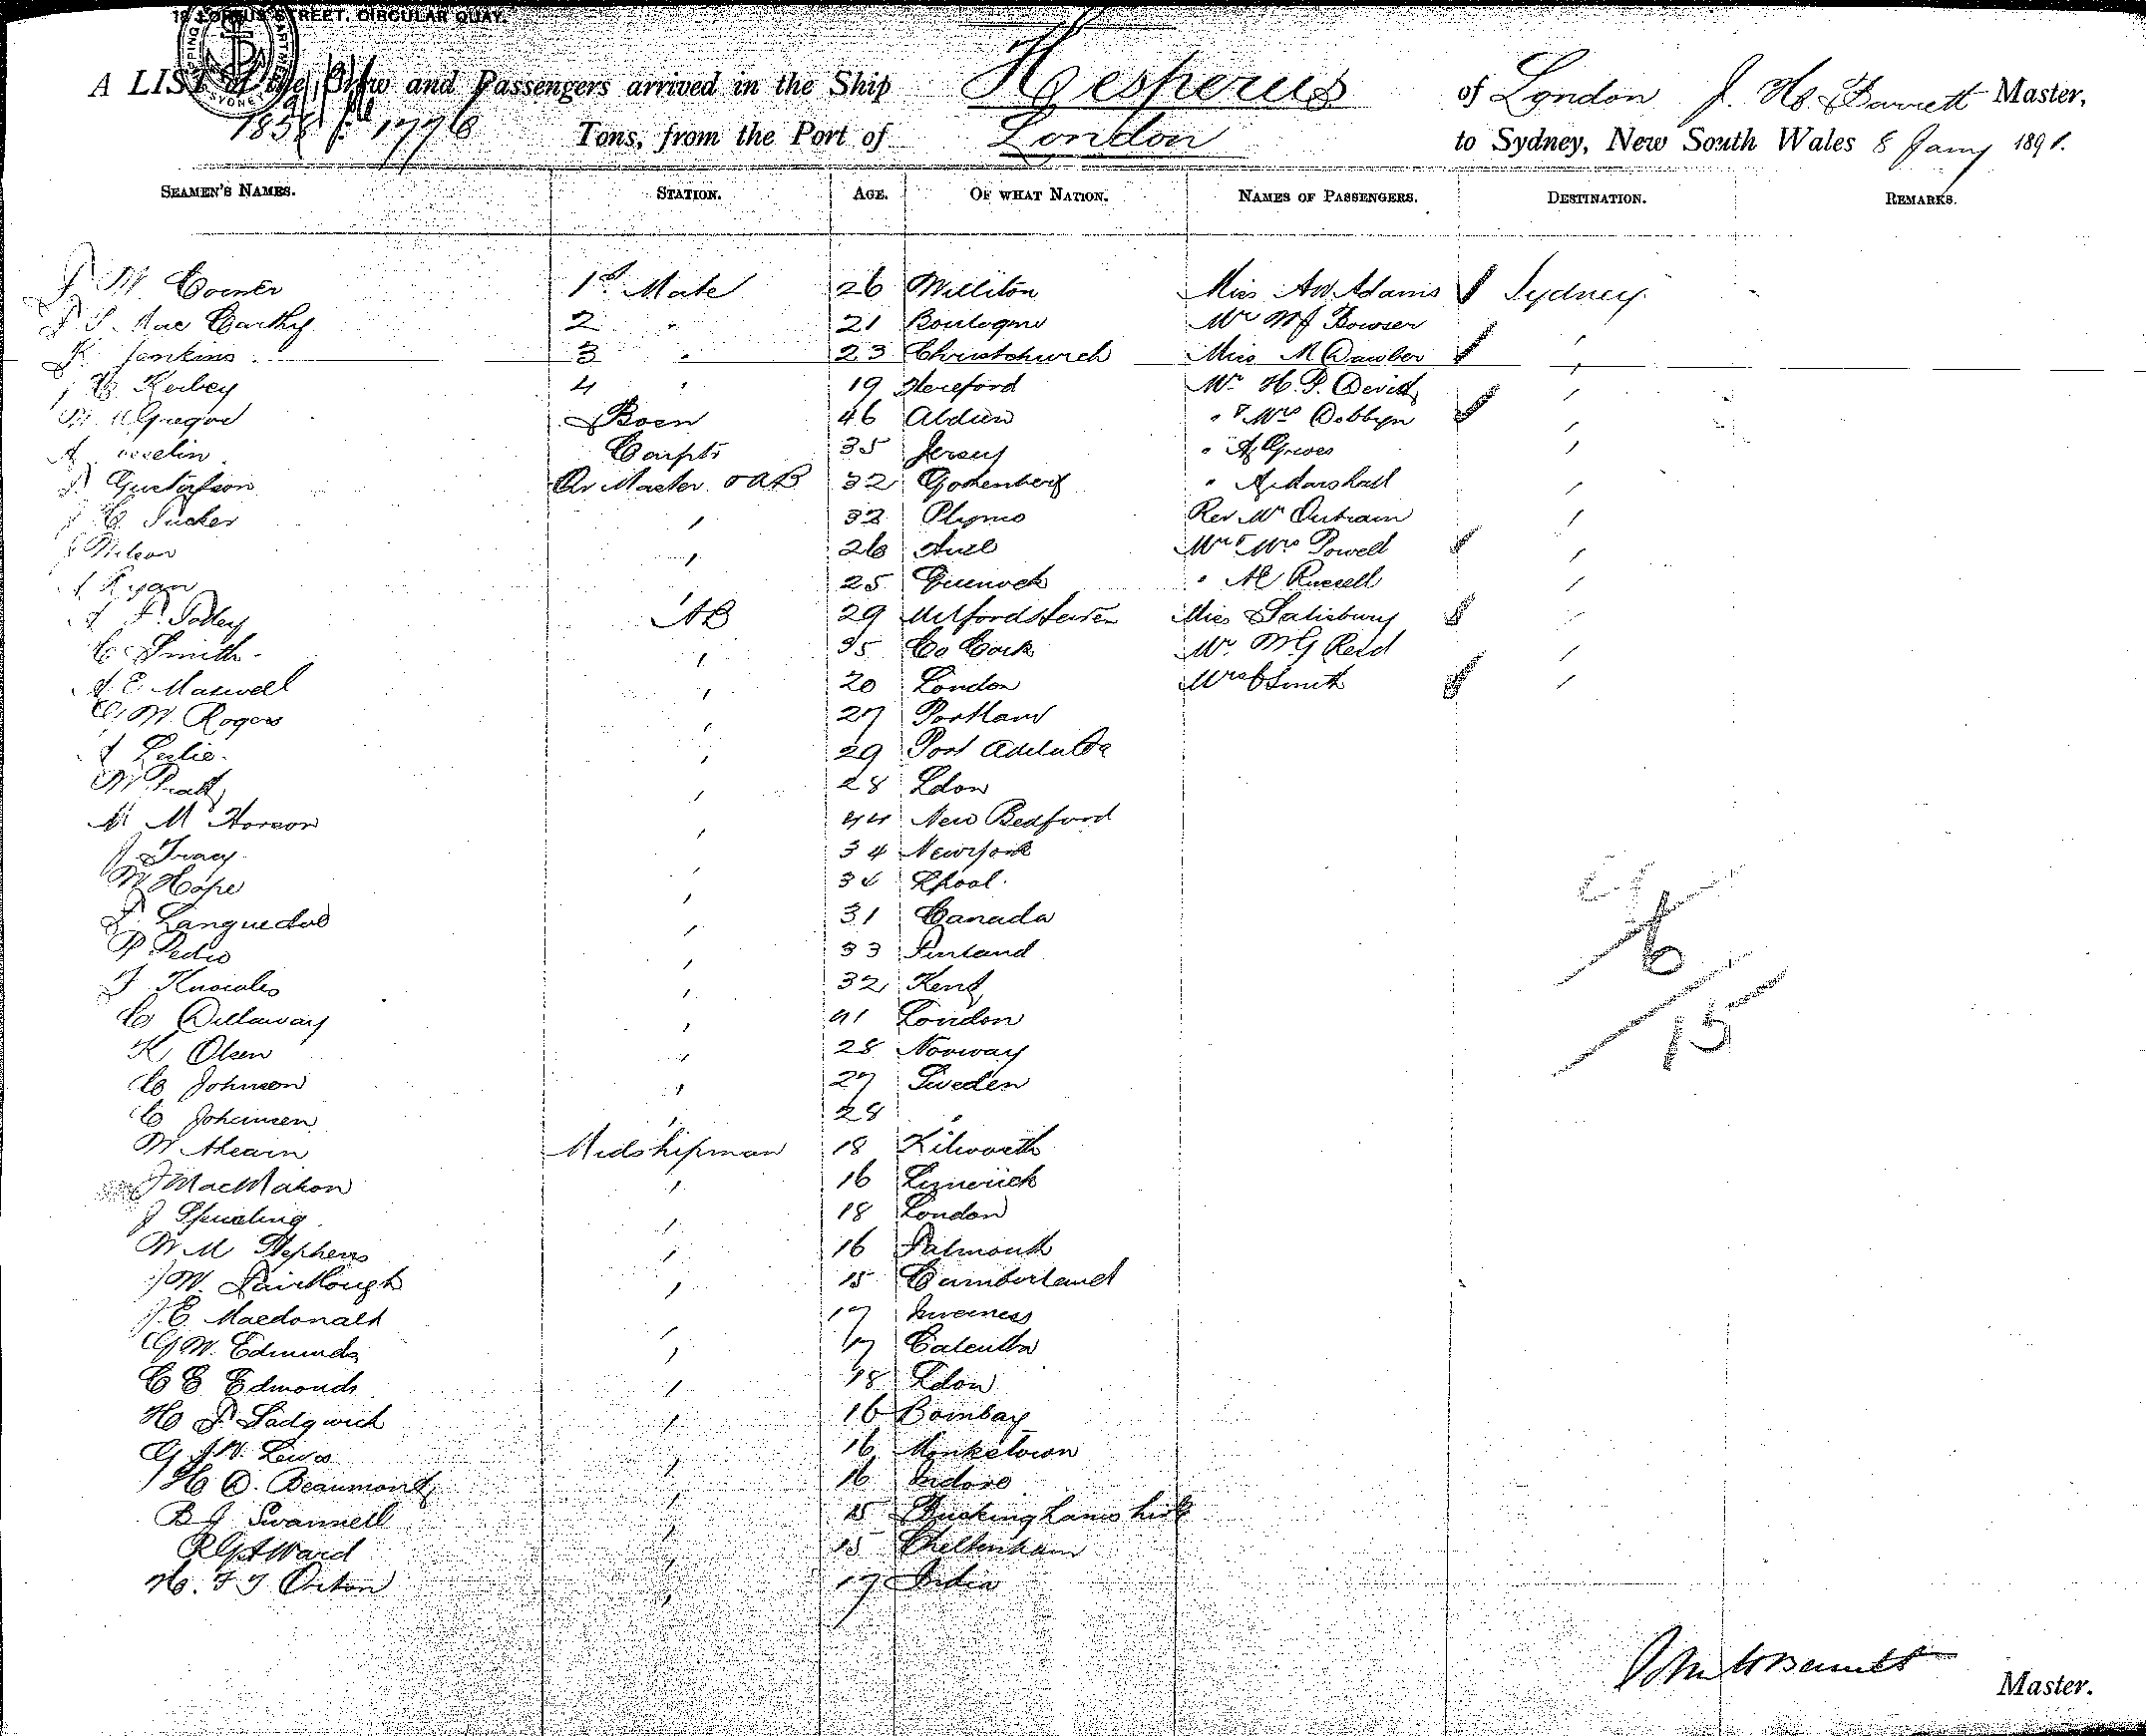 19 LOFTUS STREET, CIRCULAR QUAY.
A LIST of the Crew and Passengers arrived in the Ship Hesperus of London J. H. Barrett Master,
1776 Tons, from the Port of London to Sydney, New South Wales 8 Jany 1891.
SEAMEN'S NAMES. STATION. AGE. OF WHAT NATION. NAMES OF PASSENGERS. DESTINATION. REMARKS.
J W Corner 1st Mate 26 Williton Miss Adams Sydney
Mac Carthy 2 " 21 Boulogne Mr W J Bowser
Jenkins 3 " 23 Christchurch Miss M Dawber "
Kerbey 4 " 19 Hereford Mr H. P. "
McGregor Bosn 46 & Mrs Dobbyn "
Carptr 35 Jersey " "
Gustafson Qr Master & AB 32 Gothenberg " A Marshall "
C Tucker " 32 Plymo Rev Mr Outram "
Wilson " 26 Mr & Mrs Powell "
Ryan " 25 Greenock " Russell "
AB 29 Milford Haven Miss Salisbury "
C Smith " 35 Co Cork Mr W G Reid "
A E Maxwell " 20 London Mrs Smith "
W. Rogers " 27 Portland
Leslie " 29 Port Adelaide
W Pratt " 28 Ldon
M M " 44 New Bedford
J Tracy " 34 New York
W Hope " 34 Lpool
Languedoc " 31 Canada
P Pedro " 33 Finland
J Knowles " 32 Kent
C Dillaway " 41 London
K Olsen " 28 Norway
C Johnson " 27 Sweden
C Johansen " 28 "
W Ahearn Midshipman 18 Kilworth
J MacMahon " 16 Limerick
J Spurling " 18 London
W M Stephens " 16 Falmouth
J W. Fairclough " 15 Cumberland
J. E. Macdonald " 17 Inverness
G W. Edmunds " 17 Calcutta
C E Edmonds " 18 Ldon
H P Sadgwick " 16 Bombay
G J W. Lewis " 16 Monkstown
H D. Beaumont " 16 Indore
B J Swannell " 15 Buckinghamshire
R G A Ward " 15 Cheltenham
H. F J Orton " 17 India
6
15
Master.